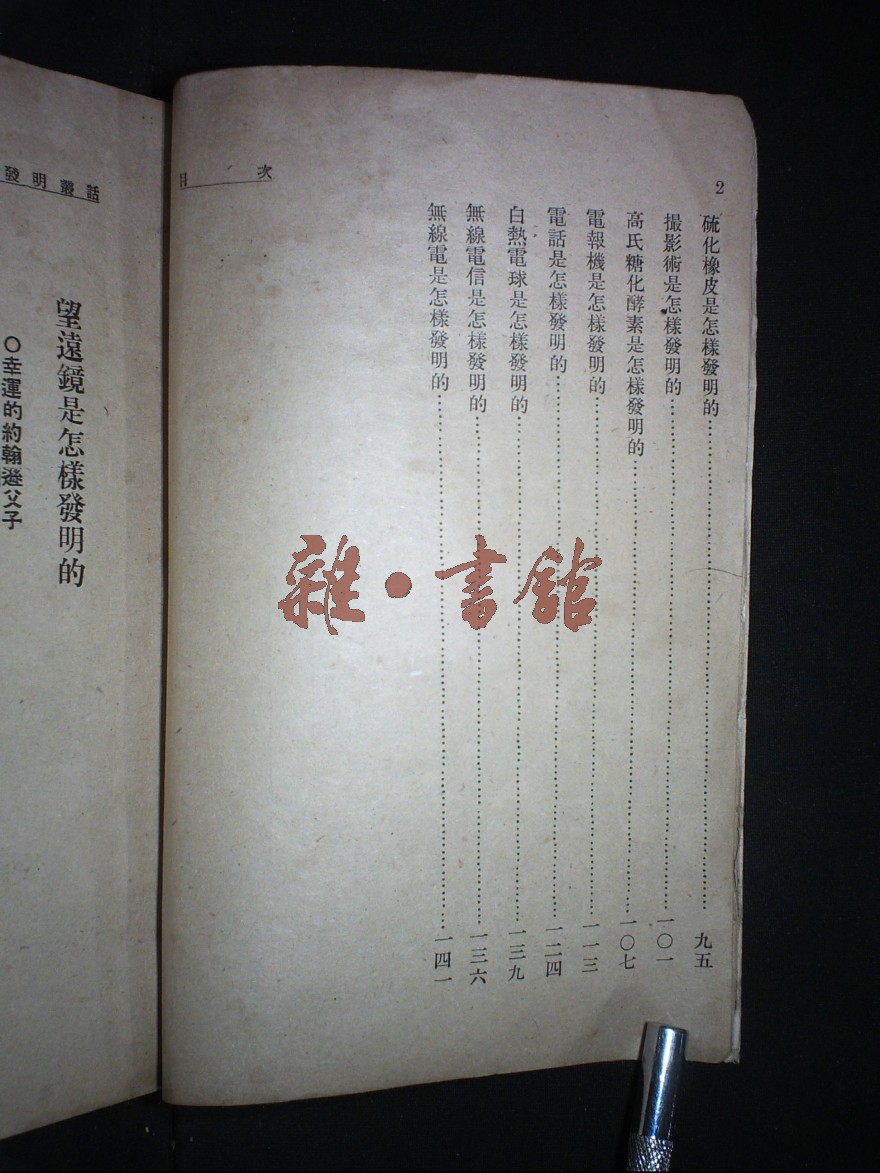 2
目次
硫化橡皮是怎樣發明的……九五
撮影術是怎樣發明的……一〇一
高氏糖化酵素是怎樣發明的……一〇七
電報機是怎樣發明的……一一三
電話是怎樣發明的……一二四
白熱電球是怎樣發明的……一三九
無線電信是怎樣發明的……一三六
無線電是怎樣發明的……一四一
發明叢話
望遠鏡是怎樣發明的
○幸運的約翰遜父子
雜·書館